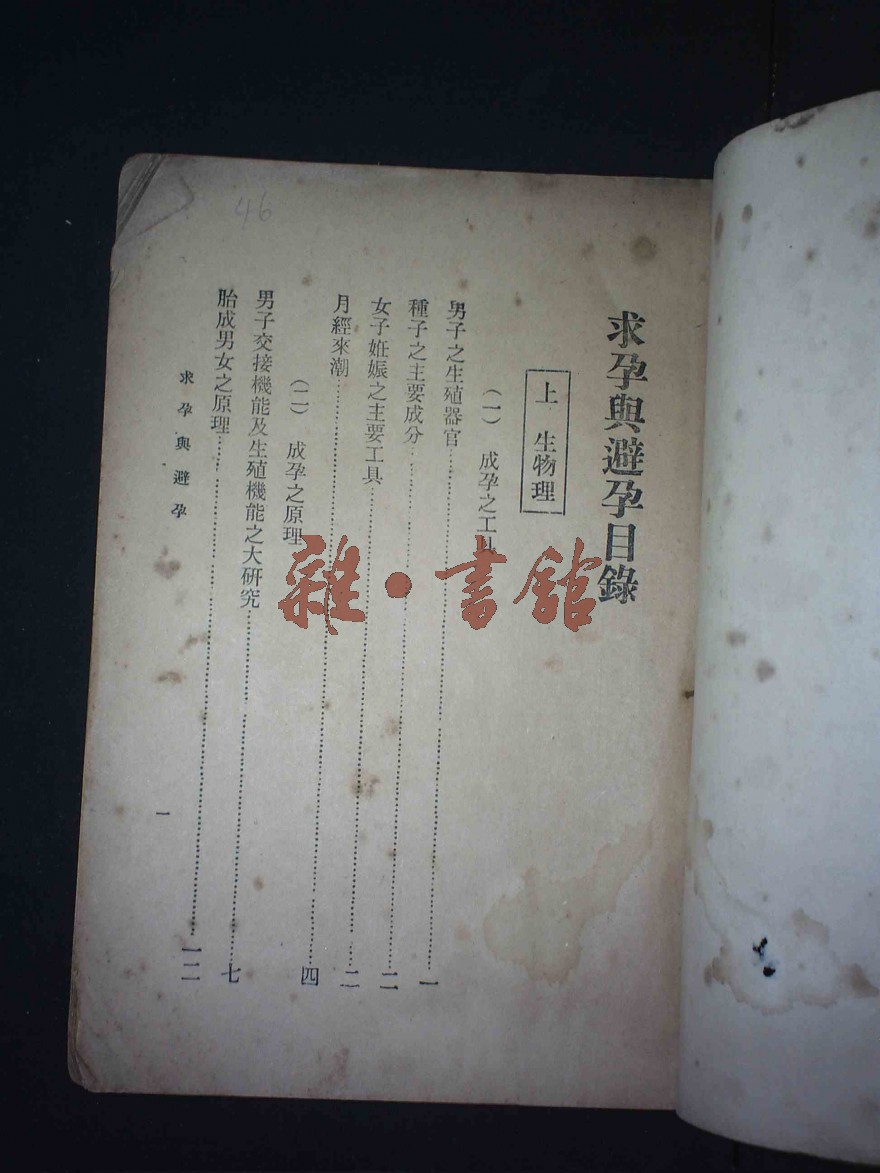 求孕與避孕目錄
上 生物理
（一） 成孕之工具
男子之生殖器官……一
種子之主要成分……二
女子姙娠之主要工具……二
月經來潮……四
（二） 成孕之原理
男子交接機能及生殖機能之大研究……七
胎成男女之原理……一二
求孕與避孕
一
46
雜·書館